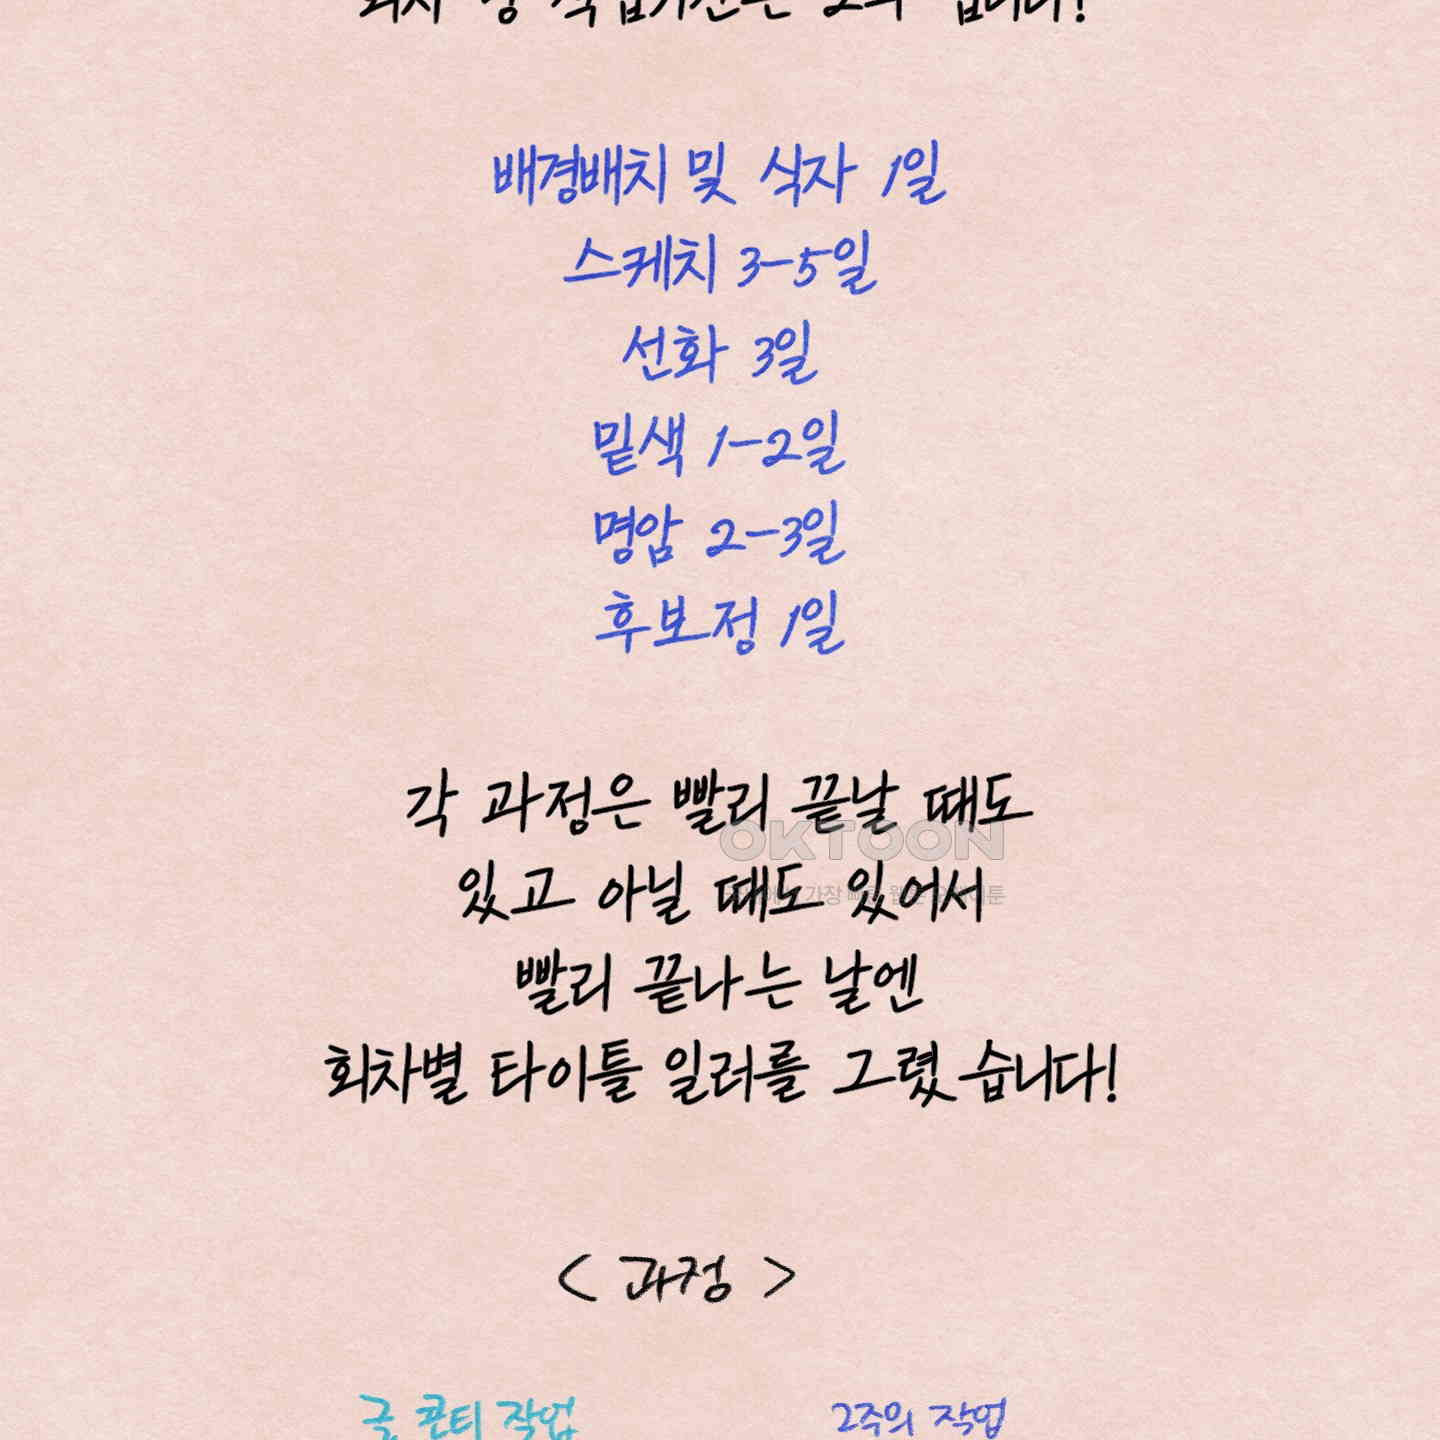 회차 당 작업기간은 2주 입니다!
배경배치 및 식자 1일
스케치 3-5일
선화 3일
밑색 1-2일
명암 2-3일
후보정 1일
각 과정은 빨리 끝날 때도
OKTOON
있고 아닐 때도 있어서
빨리 끝나는 날엔
회차별 타이틀 일러를 그렸습니다!
< 과정 >
글 콘티 작업
2주의 작업